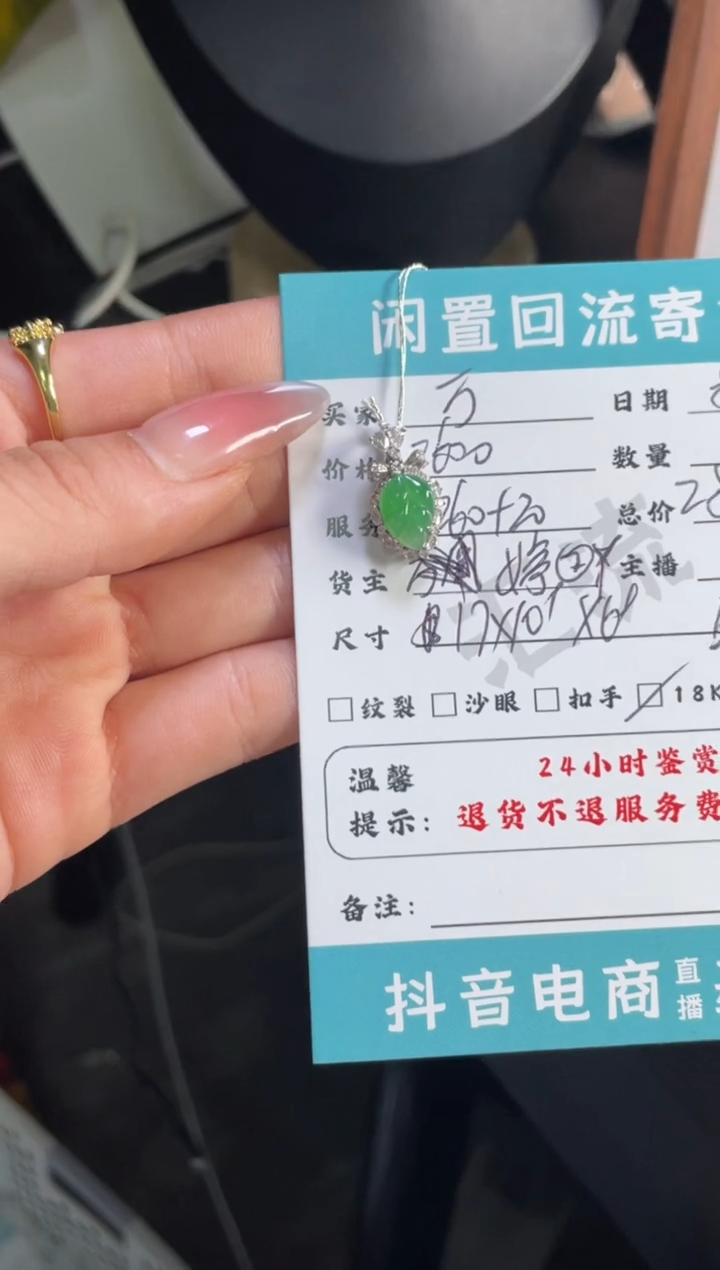 闲置回流寄
买家 万 日期
价格 2600 数量
服务 260+20 总价 28
货主 婷 主播
尺寸 17X10 X6
汇流
纹裂 沙眼 扣手 18K
温馨 24小时鉴赏
提示: 退货不退服务费
备注:
抖音电商 直播